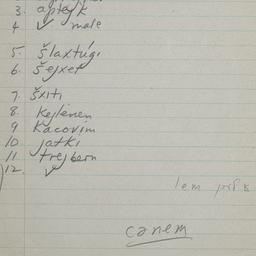 3. aptejk
4 ✓ male
5. šlaxtúgi
6. šejxet
7. šxiti
8. Kejlenen
9 Kacovim
10 jatki
11 trejbern
12. ✓
lem
canem